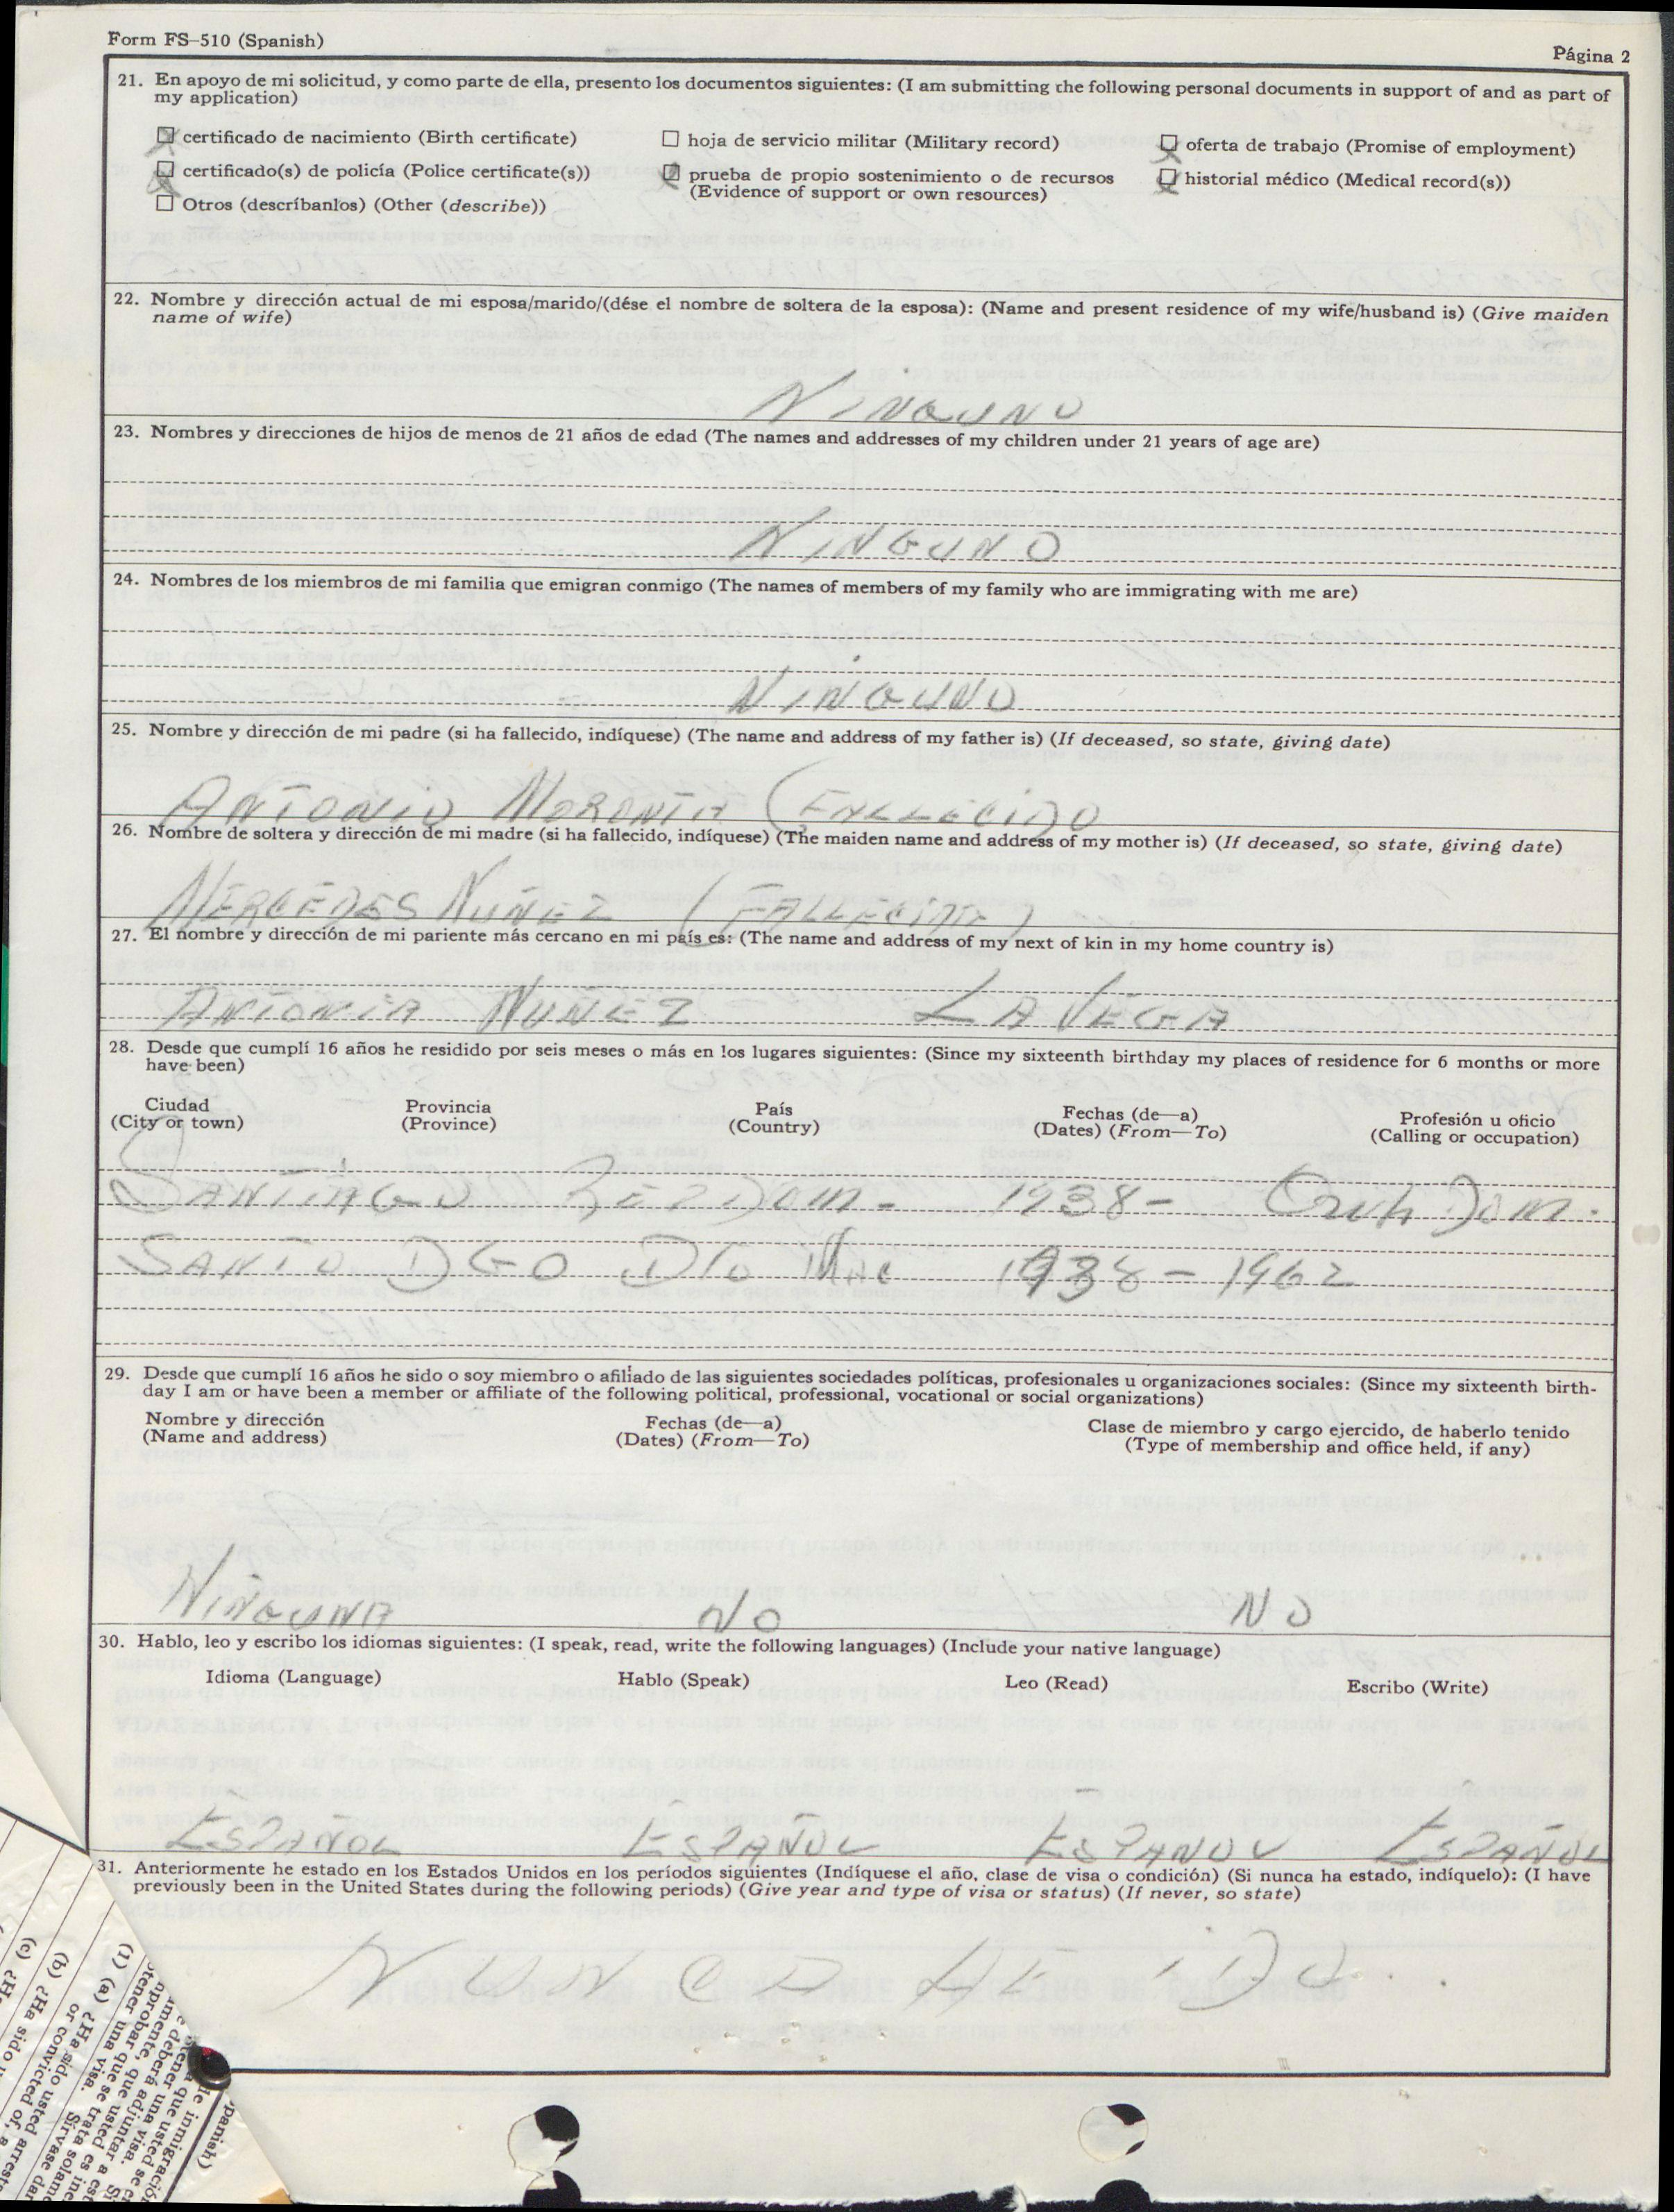 Form FS-510 (Spanish)
Página 2
21. En apoyo de mi solicitud, y como parte de ella, presento los documentos siguientes: (I am submitting the following personal documents in support of and as part of
my application)
certificado de nacimiento (Birth certificate)
hoja de servicio militar (Military record)
oferta de trabajo (Promise of employment)
certificado(s) de policía (Police certificate(s))
prueba de propio sostenimiento o de recursos
(Evidence of support or own resources)
historial médico (Medical record(s))
Otros (descríbanlos) (Other (describe))
22. Nombre y dirección actual de mi esposa/marido/(dése el nombre de soltera de la esposa): (Name and present residence of my wife/husband is) (Give maiden
name of wife)
NINGUNO
23. Nombres y direcciones de hijos de menos de 21 años de edad (The names and addresses of my children under 21 years of age are)
NINGUNO
24. Nombres de los miembros de mi familia que emigran conmigo (The names of members of my family who are immigrating with me are)
NINGUNO
25. Nombre y dirección de mi padre (si ha fallecido, indíquese) (The name and address of my father is) (If deceased, so state, giving date)
ANTONIO MORONTA (FALLECIDO
26. Nombre de soltera y dirección de mi madre (si ha fallecido, indíquese) (The maiden name and address of my mother is) (If deceased, so state, giving date)
MERCEDES NUÑEZ (FALLECIDA)
27. El nombre y dirección de mi pariente más cercano en mi país es: (The name and address of my next of kin in my home country is)
ANTONIA NUÑEZ LA VEGA
28. Desde que cumplí 16 años he residido por seis meses o más en los lugares siguientes: (Since my sixteenth birthday my places of residence for 6 months or more
have been)
Ciudad
(City or town)
Provincia
(Province)
País
(Country)
Fechas (de—a)
(Dates) (From—To)
Profesión u oficio
(Calling or occupation)
SANTIAGO REP Dom. 1938- Dom.
SANTO DGO DTO Nac 1938-1962
29. Desde que cumplí 16 años he sido o soy miembro o afiliado de las siguientes sociedades políticas, profesionales u organizaciones sociales: (Since my sixteenth birth-
day I am or have been a member or affiliate of the following political, professional, vocational or social organizations)
Nombre y dirección
(Name and address)
Fechas (de—a)
(Dates) (From—To)
Clase de miembro y cargo ejercido, de haberlo tenido
(Type of membership and office held, if any)
NINGUNA NO NO
30. Hablo, leo y escribo los idiomas siguientes: (I speak, read, write the following languages) (Include your native language)
Idioma (Language) Hablo (Speak) Leo (Read) Escribo (Write)
ESPAÑOL ESPAÑOL ESPANOL ESPAÑOL
31. Anteriormente he estado en los Estados Unidos en los períodos siguientes (Indíquese el año, clase de visa o condición) (Si nunca ha estado, indíquelo): (I have
previously been in the United States during the following periods) (Give year and type of visa or status) (If never, so state)
NUNCA HE IDO.